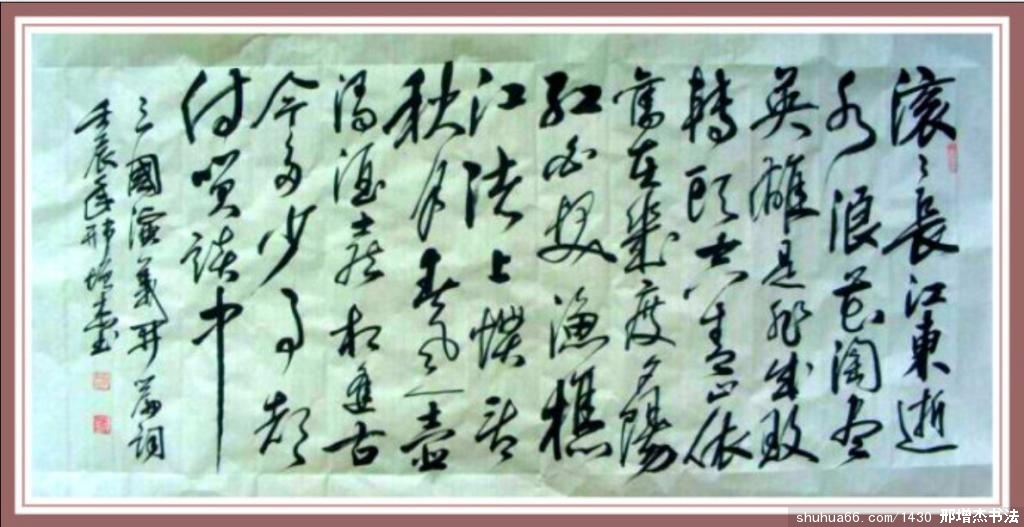 滚〻長江東逝
水浪花淘尽
英雄是非成败
轉頭空青山依
舊在幾度夕陽
红白发渔樵
江渚上惯看
秋月春风一壶
浊酒喜相逢古
今多少事都
付笑谈中
三國演義开篇词
壬辰年邢增杰书
shuhua66.com/1430 邢增杰书法